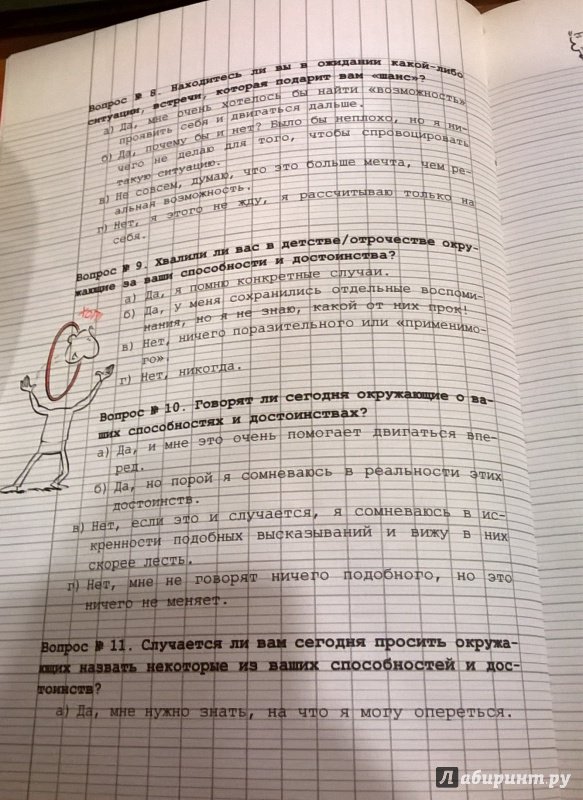 Вопрос № 8. Находитесь ли вы в ожидании какой-либо
ситуации, встречи, которая подарит вам «шанс»?
а) Да, мне очень хотелось бы найти «возможность»
проявить себя и двигаться дальше.
б) Да, почему бы и нет? Было бы неплохо, но я ни-
чего не делаю для того, чтобы спровоцировать
такую ситуацию.
в) Не совсем, думаю, что это больше мечта, чем ре-
альная возможность.
г) Нет, я этого не жду, я рассчитываю только на
себя.
Вопрос № 9. Хвалили ли вас в детстве/отрочестве окру-
жающие за ваши способности и достоинства?
а) Да, я помню конкретные случаи.
б) Да, у меня сохранились отдельные воспоми-
нания, но я не знаю, какой от них прок!
в) Нет, ничего поразительного или «применимо-
го».
г) Нет, никогда.
Вопрос № 10. Говорят ли сегодня окружающие о ва-
ших способностях и достоинствах?
а) Да, и мне это очень помогает двигаться впе-
ред.
б) Да, но порой я сомневаюсь в реальности этих
достоинств.
в) Нет, если это и случается, я сомневаюсь в ис-
кренности подобных высказываний и вижу в них
скорее лесть.
г) Нет, мне не говорят ничего подобного, но это
ничего не меняет.
Вопрос № 11. Случается ли вам сегодня просить окружа-
ющих назвать некоторые из ваших способностей и дос-
тоинств?
а) Да, мне нужно знать, на что я могу опереться.
Лабиринт.ру